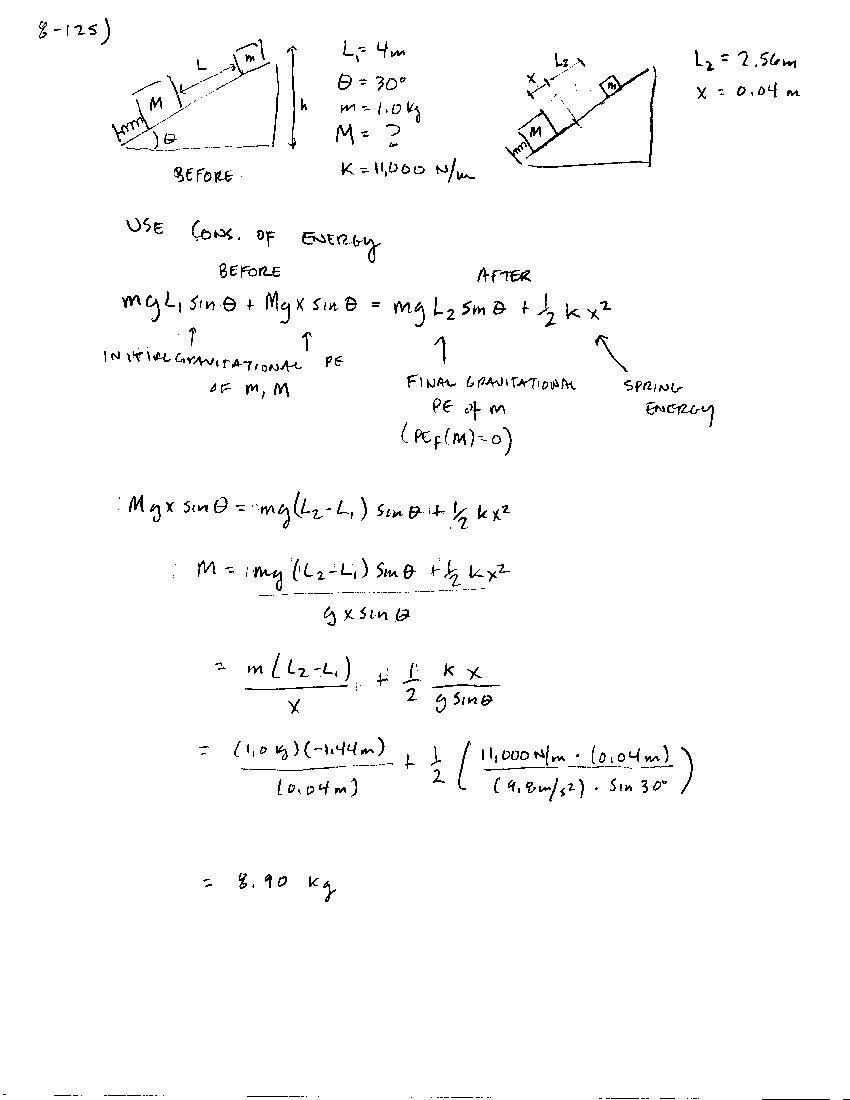 8-125)
L
m
M
h
θ
BEFORE
L₁ = 4m
θ = 30°
m = 1.0 kg
M = ?
K = 11,000 N/m
L₂
x
m
M
L₂ = 2.56m
x = 0.04 m
USE CONS. OF ENERGY
BEFORE AFTER
mgL₁ sin θ + Mgx sin θ = mg L₂ sin θ + 1/2 k x²
INITIAL GRAVITATIONAL PE
OF m, M
FINAL GRAVITATIONAL
PE of m
(PE_f(M)=0)
SPRING
ENERGY
Mgx sin θ = mg(L₂-L₁) sin θ + 1/2 kx²
M = mg (L₂-L₁) sin θ + 1/2 kx²
g x sin θ
= m(L₂-L₁) / x + 1/2 k x / g sin θ
= (1.0 kg)(-1.44m) / (0.04m) + 1/2 (11,000 N/m · (0.04m) / (9.8m/s²) · sin 30°)
= 8.90 kg